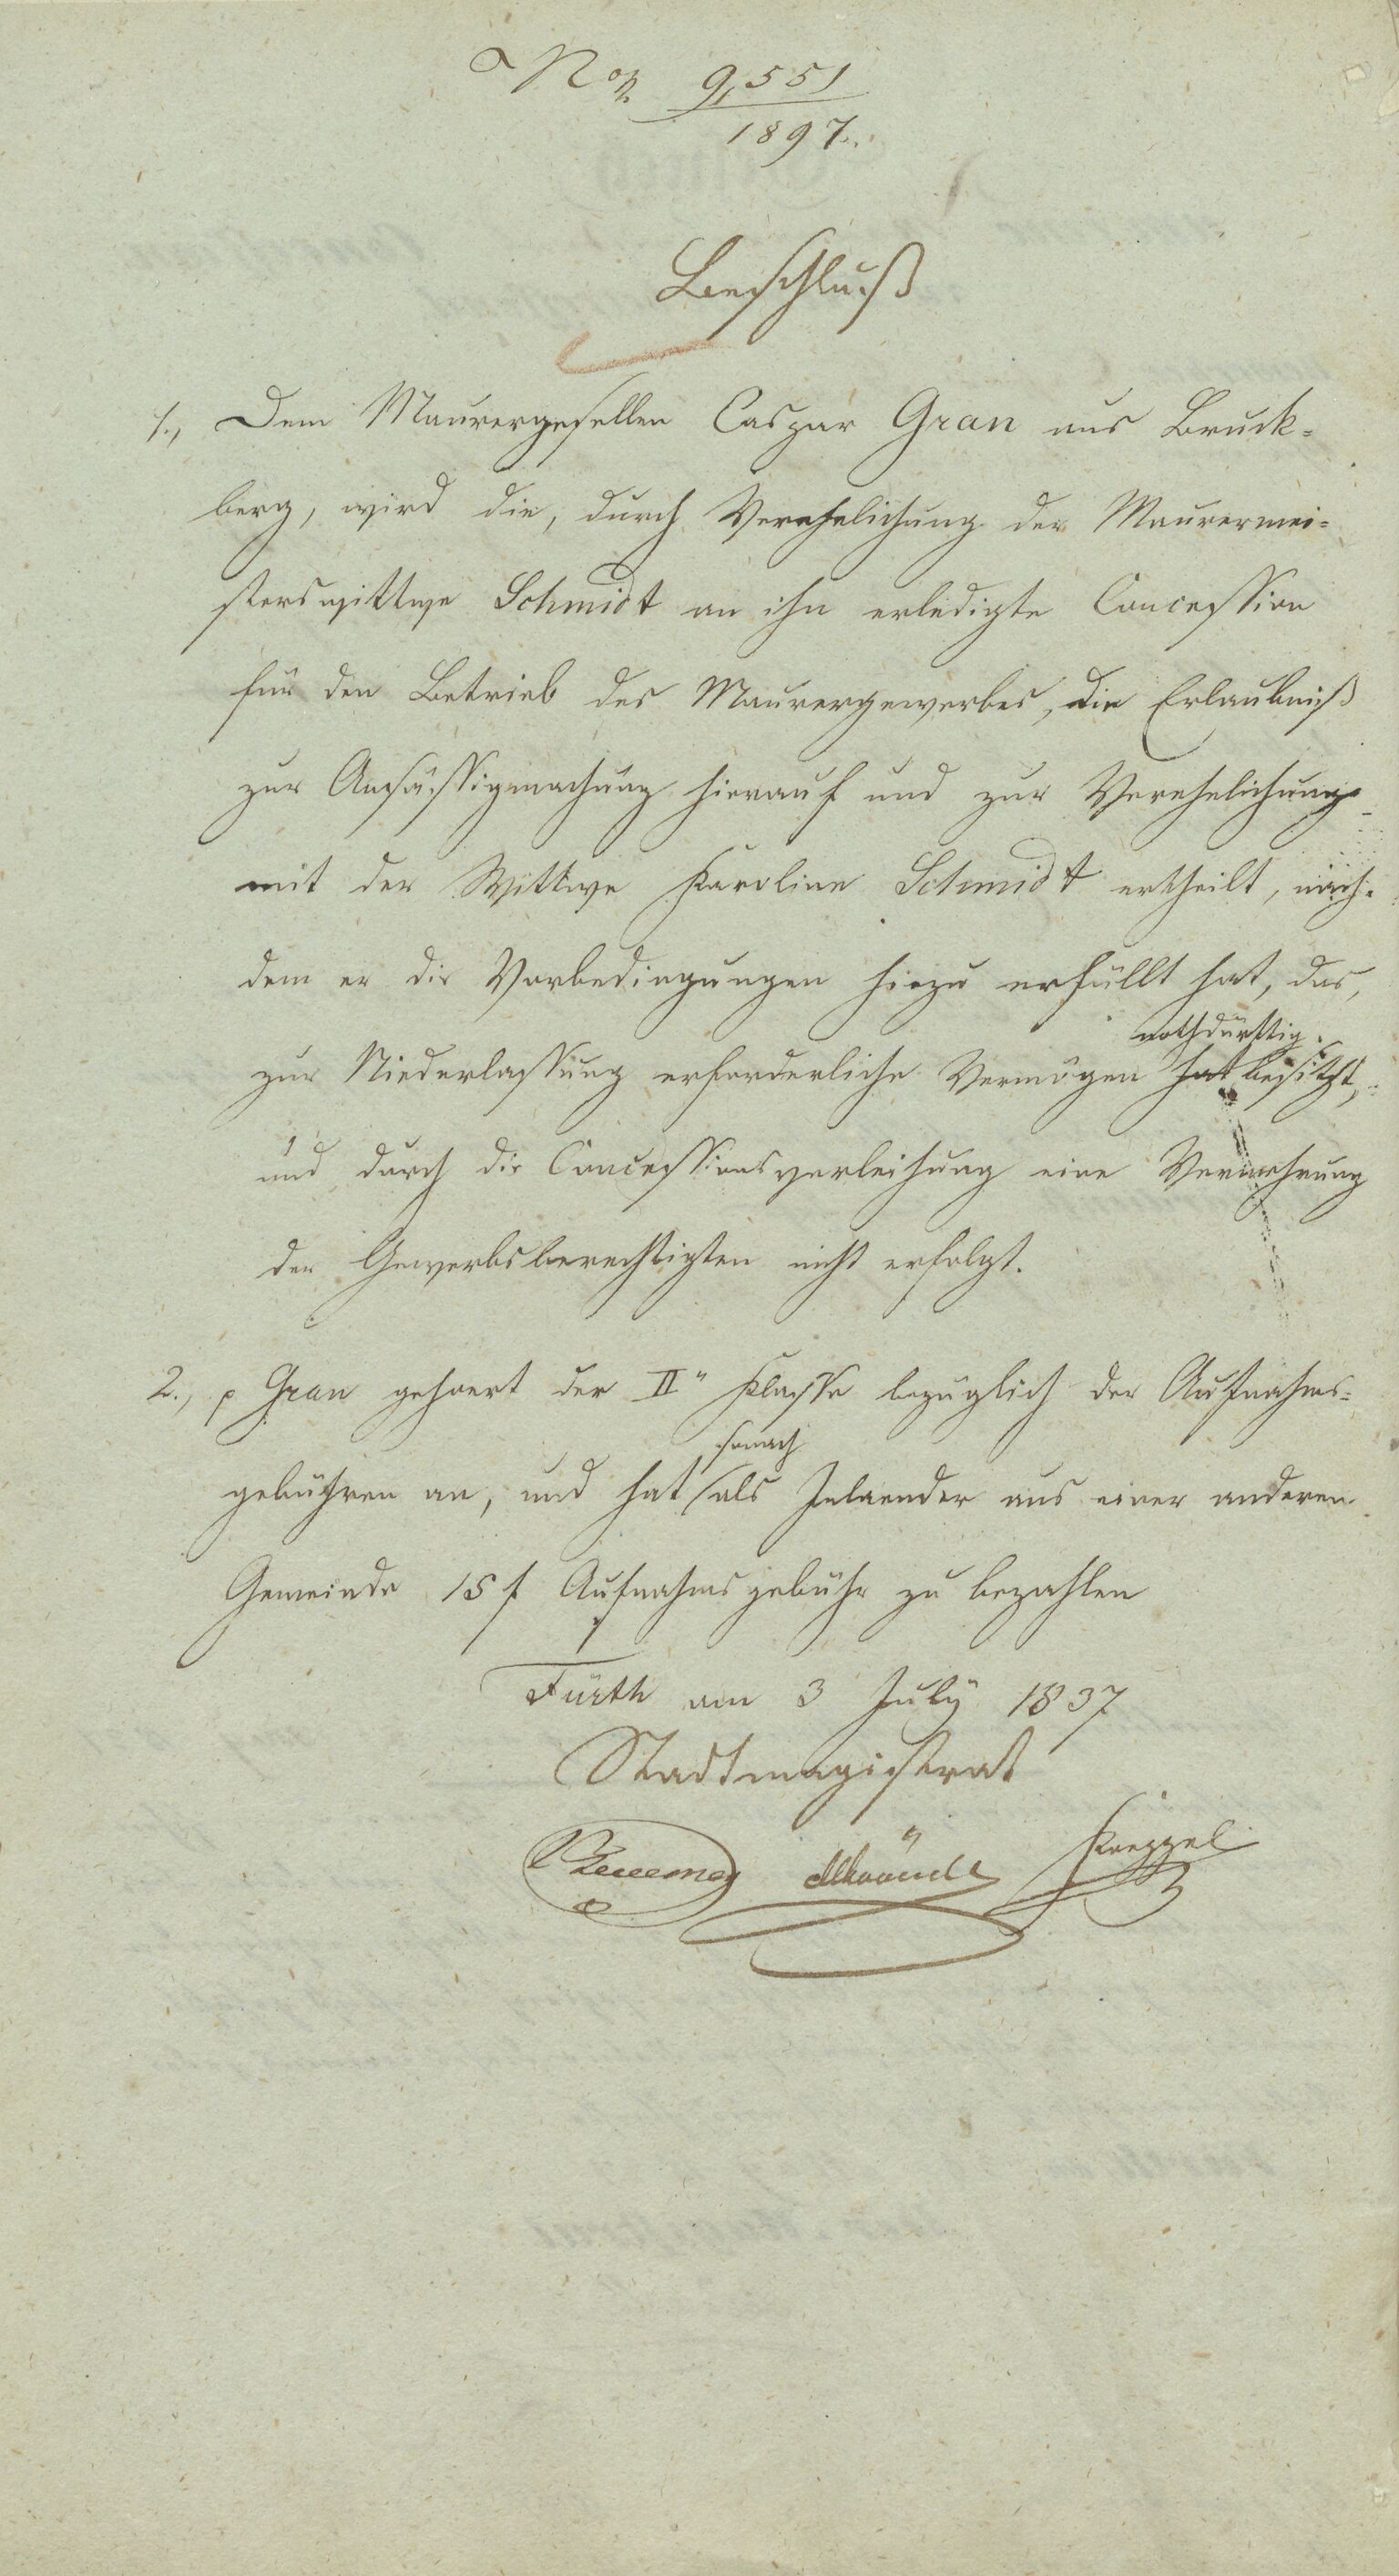 No. 9,551
1897.
Beschluß
1., Dem Maurergesellen Caspar Gran aus Bruck-
berg, wird die, durch Verehelichung der Maurermei-
sterswittwe Schmidt an ihn erledigte Concession
für den Betrieb des Maurergewerbes, die Erlaubniß
zur Ansäßigmachung hierauf und zur Verehelichung
mit der Wittwe Karoline Schmidt ertheilt, nach-
dem er die Vorbedingungen hiezu erfüllt hat, das,
nothdürftig
zur Niederlassung erforderliche Vermögen hat besitzt,
und durch die Concessionsverleihung eine Vermehrung
der Gewerbsberechtigten nicht erfolgt.
2., p Gran gehoert der II" Klasse bezüglich der Aufnahms-
sonach
gebühren an, und hat als Inlaender aus einer anderen
Gemeinde 15 f Aufnahmsgebühr zu bezahlen
Fürth am 3 July 1837
Stadtmagistrat